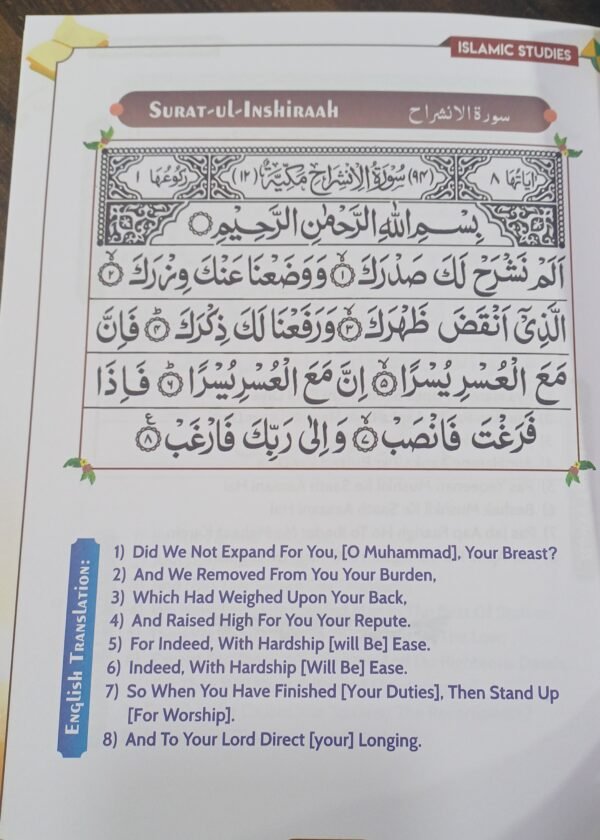 ISLAMIC STUDIES
SURAT-UL-INSHIRAAH سورة الانشراح
اٰيَاتُهَا ٨ (٩٤) سُوْرَةُ الْاِنْشِرَاحِ مَكِّيَّةٌ (١٢) رُكُوْعُهَا ١
بِسْمِ اللّٰهِ الرَّحْمٰنِ الرَّحِيْمِ
اَلَمْ نَشْرَحْ لَكَ صَدْرَكَ ۙ﴿١﴾ وَوَضَعْنَا عَنْكَ وِزْرَكَ ۙ﴿٢﴾
الَّذِيْۤ اَنْقَضَ ظَهْرَكَ ۙ﴿٣﴾ وَرَفَعْنَا لَكَ ذِكْرَكَ ؕ﴿٤﴾ فَاِنَّ
مَعَ الْعُسْرِ يُسْرًا ۙ﴿٥﴾ اِنَّ مَعَ الْعُسْرِ يُسْرًا ؕ﴿٦﴾ فَاِذَا
فَرَغْتَ فَانْصَبْ ۙ﴿٧﴾ وَاِلٰى رَبِّكَ فَارْغَبْ ﴿٨﴾ ع
ENGLISH TRANSLATION:
1) Did We Not Expand For You, [O Muhammad], Your Breast?
2) And We Removed From You Your Burden,
3) Which Had Weighed Upon Your Back,
4) And Raised High For You Your Repute.
5) For Indeed, With Hardship [will Be] Ease.
6) Indeed, With Hardship [Will Be] Ease.
7) So When You Have Finished [Your Duties], Then Stand Up
[For Worship].
8) And To Your Lord Direct [your] Longing.